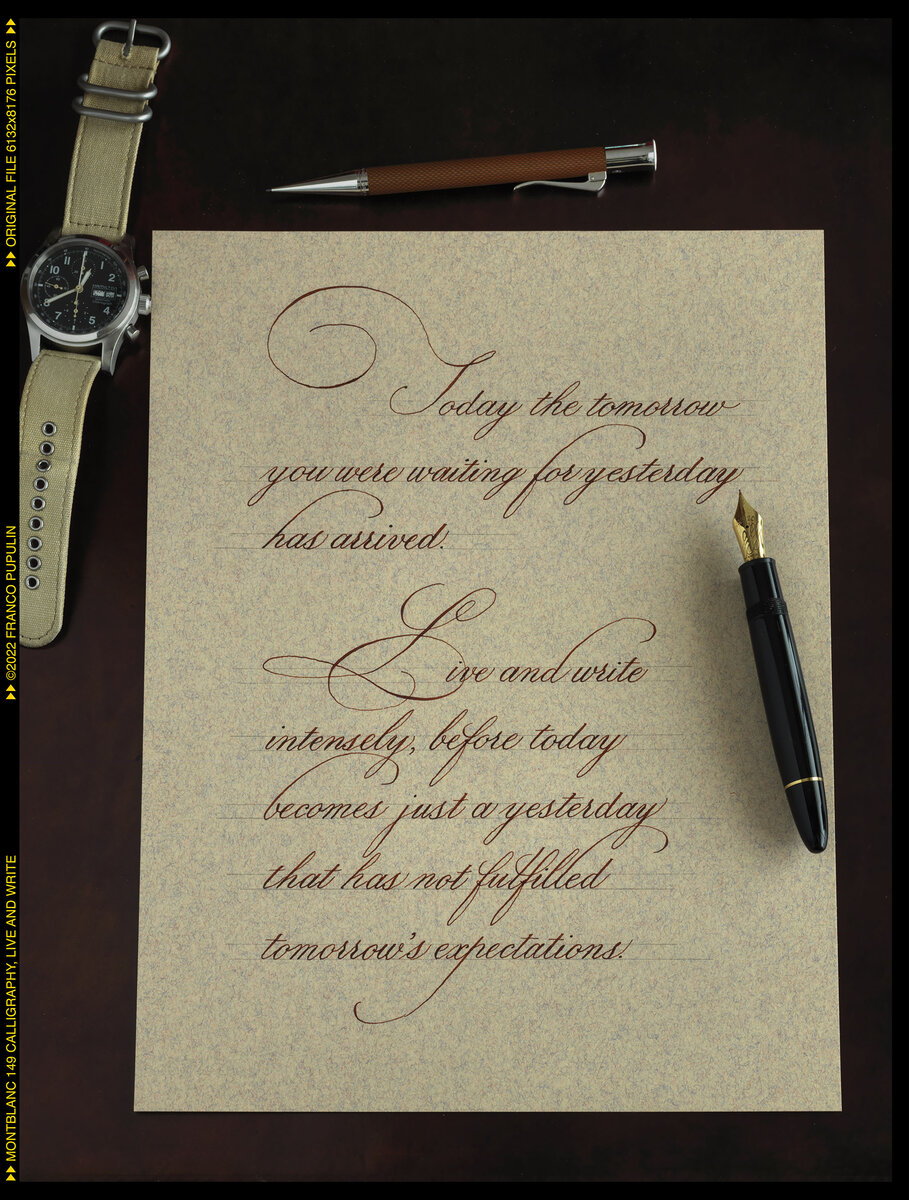 ▶▶ ORIGINAL FILE 6132x8176 PIXELS ▶▶
▶▶ ©2022 FRANCO PUPULIN
▶▶ MONTBLANC 149 CALLIGRAPHY, LIVE AND WRITE
Today the tomorrow
you were waiting for yesterday
has arrived.
Live and write
intensely, before today
becomes just a yesterday
that has not fulfilled
tomorrow's expectations.